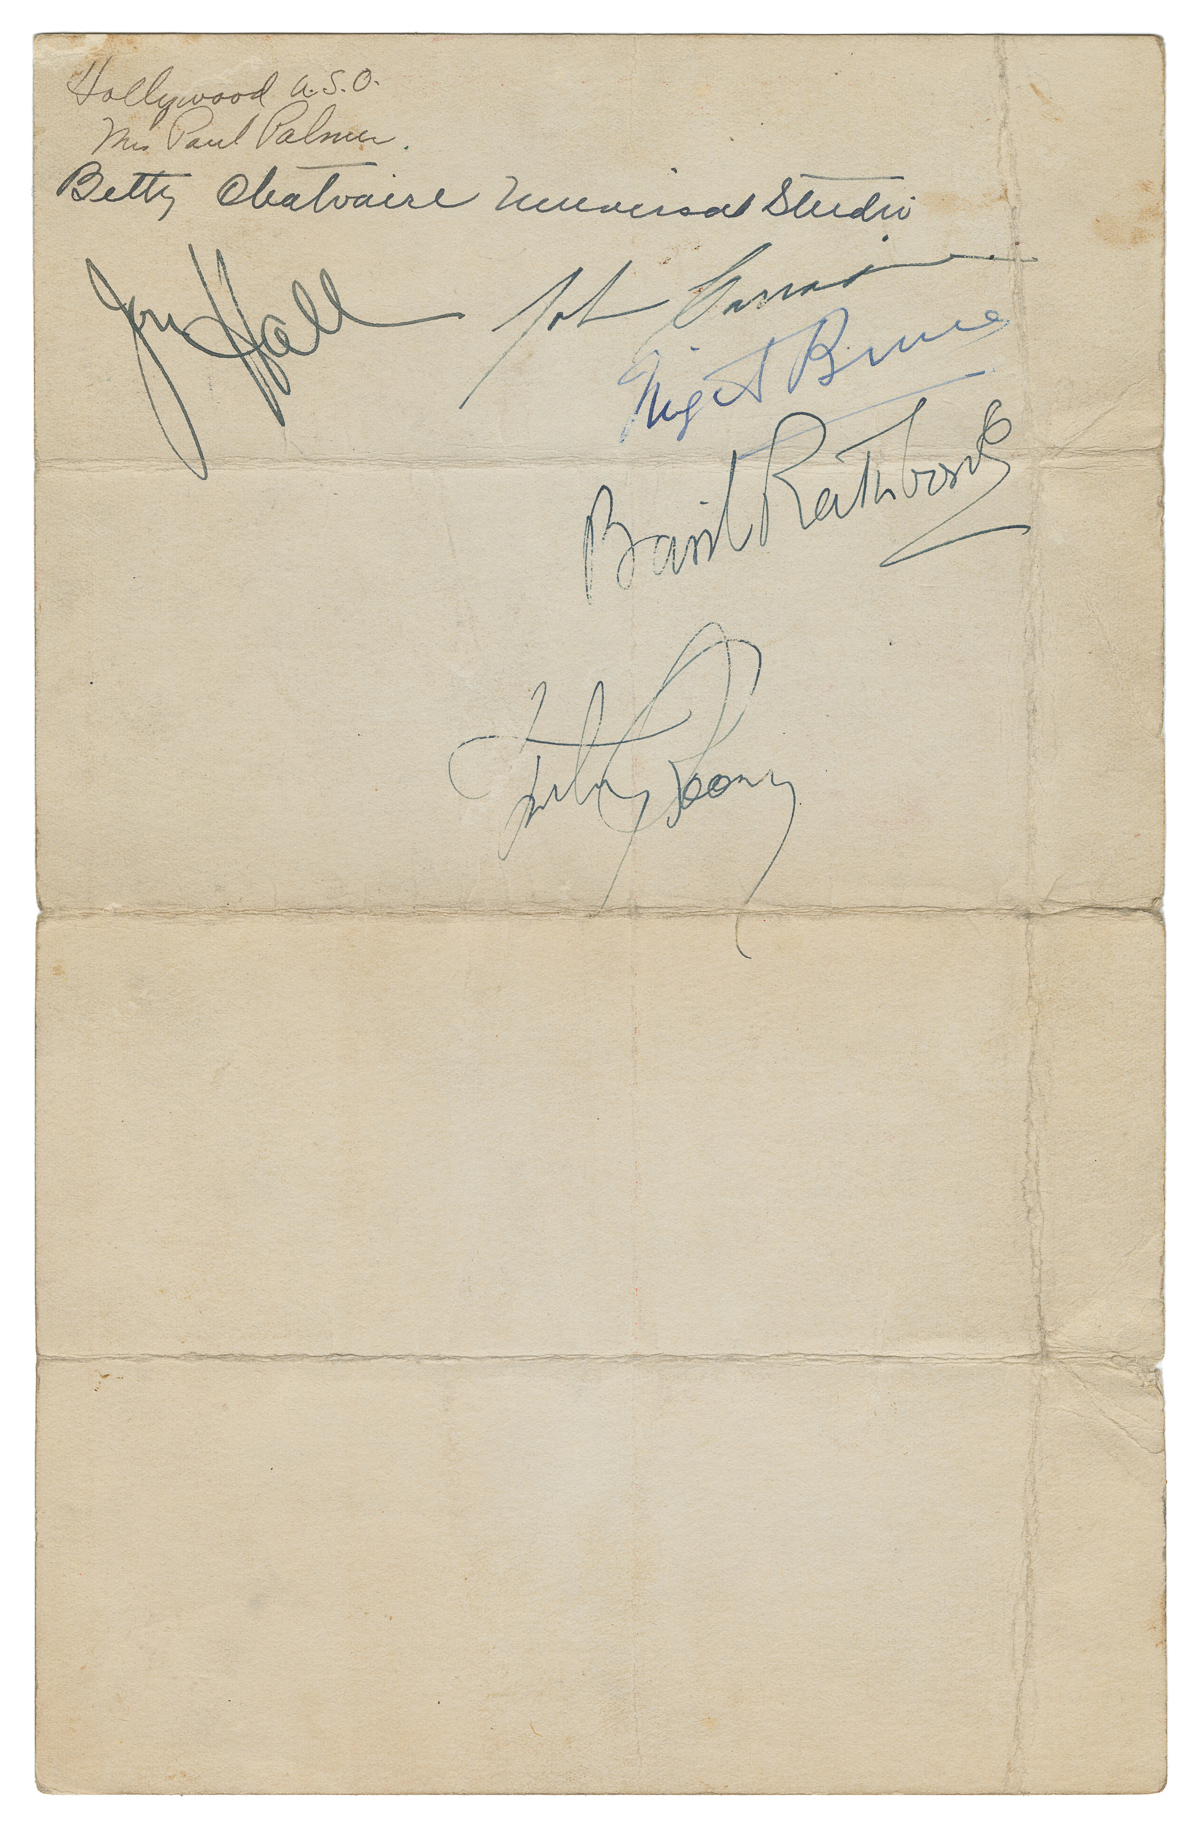 Hollywood U.S.O.
Mrs Paul Palmer.
Betty Chatvaire Universal Studio
Jon Hall
John
Nigel Bruce
Basil Rathbone